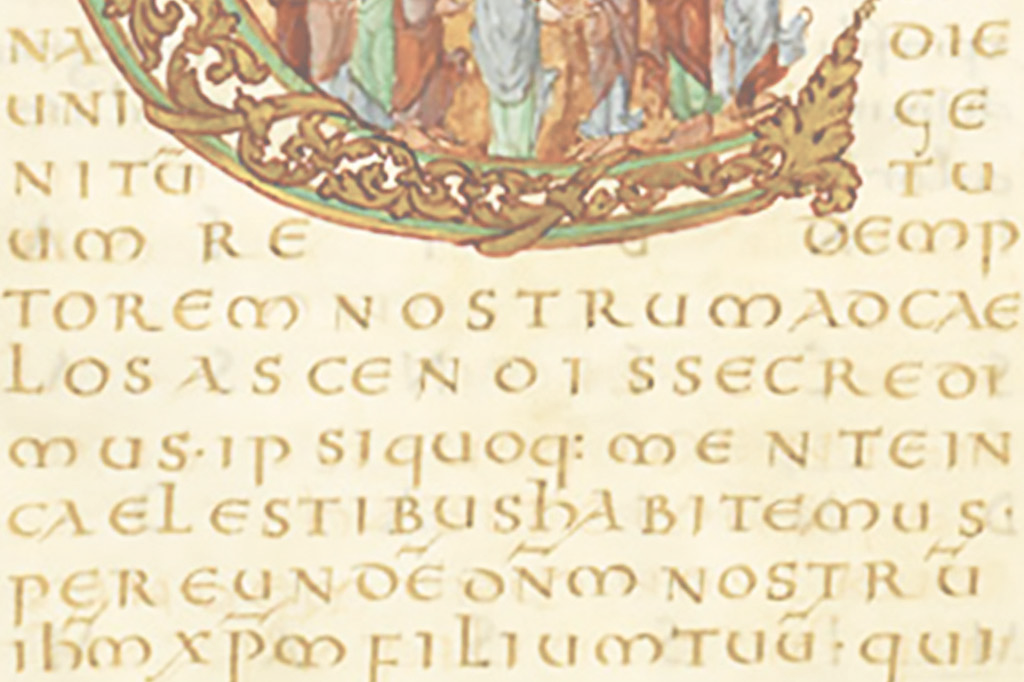 NA DIE
UNI GE
NITŪ TU
UM RE DEMP
TOREM NOSTRUMADCAE
LOSASCENDISSECREDI
MUS·IPSIQUOQ: MENTEIN
CAELESTIBUSHABITEMUS·
PEREUNDĒ DN̄M NOSTRŪ
IHM̄ XP̄M FILIUMTUŪ·QUI